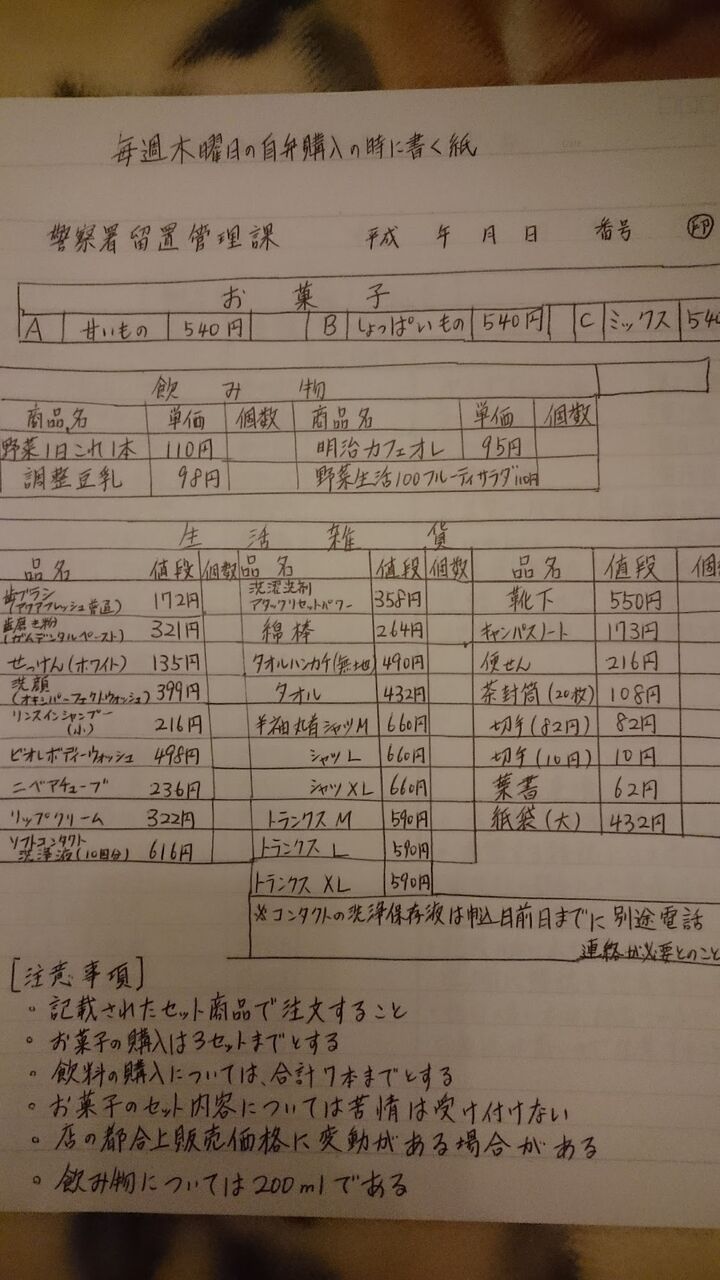 毎週木曜日の自弁購入の時に書く紙
警察署留置管理課 平成 年 月 日 番号 印
お菓子
A 甘いもの 540円 B しょっぱいもの 540円 C ミックス 540
飲み物
商品名 単価 個数 商品名 単価 個数
野菜1日これ1本 110円 明治カフェオレ 95円
調整豆乳 98円 野菜生活100フルーティサラダ 110円
生活雑貨
品名 値段 個数 品名 値段 個数 品名 値段 個
歯ブラシ(アクアフレッシュ普通) 172円 洗濯洗剤アタックリセットパワー 358円 靴下 550円
歯磨き粉(ガムデンタルペースト) 321円 綿棒 264円 キャンパスノート 173円
せっけん(ホワイト) 135円 タオルハンカチ(無地) 490円 便せん 216円
洗顔(オキシパーフェクトウォッシュ) 399円 タオル 432円 茶封筒(20枚) 108円
リンスインシャンプー(小) 216円 半袖丸首シャツM 660円 切手(82円) 82円
ビオレボディーウォッシュ 498円 シャツL 660円 切手(10円) 10円
ニベアチューブ 236円 シャツXL 660円 葉書 62円
リップクリーム 322円 トランクスM 590円 紙袋(大) 432円
ソフトコンタクト洗浄液(10回分) 616円 トランクス L 590円
トランクス XL 590円
※コンタクトの洗浄保存液は申込日前日までに別途電話
連絡が必要とのこと
[注意事項]
。記載されたセット商品で注文すること
。お菓子の購入は3セットまでとする
。飲料の購入については、合計7本までとする
。お菓子のセット内容については苦情は受け付けない
。店の都合上販売価格に変動がある場合がある
。飲み物については200mlである